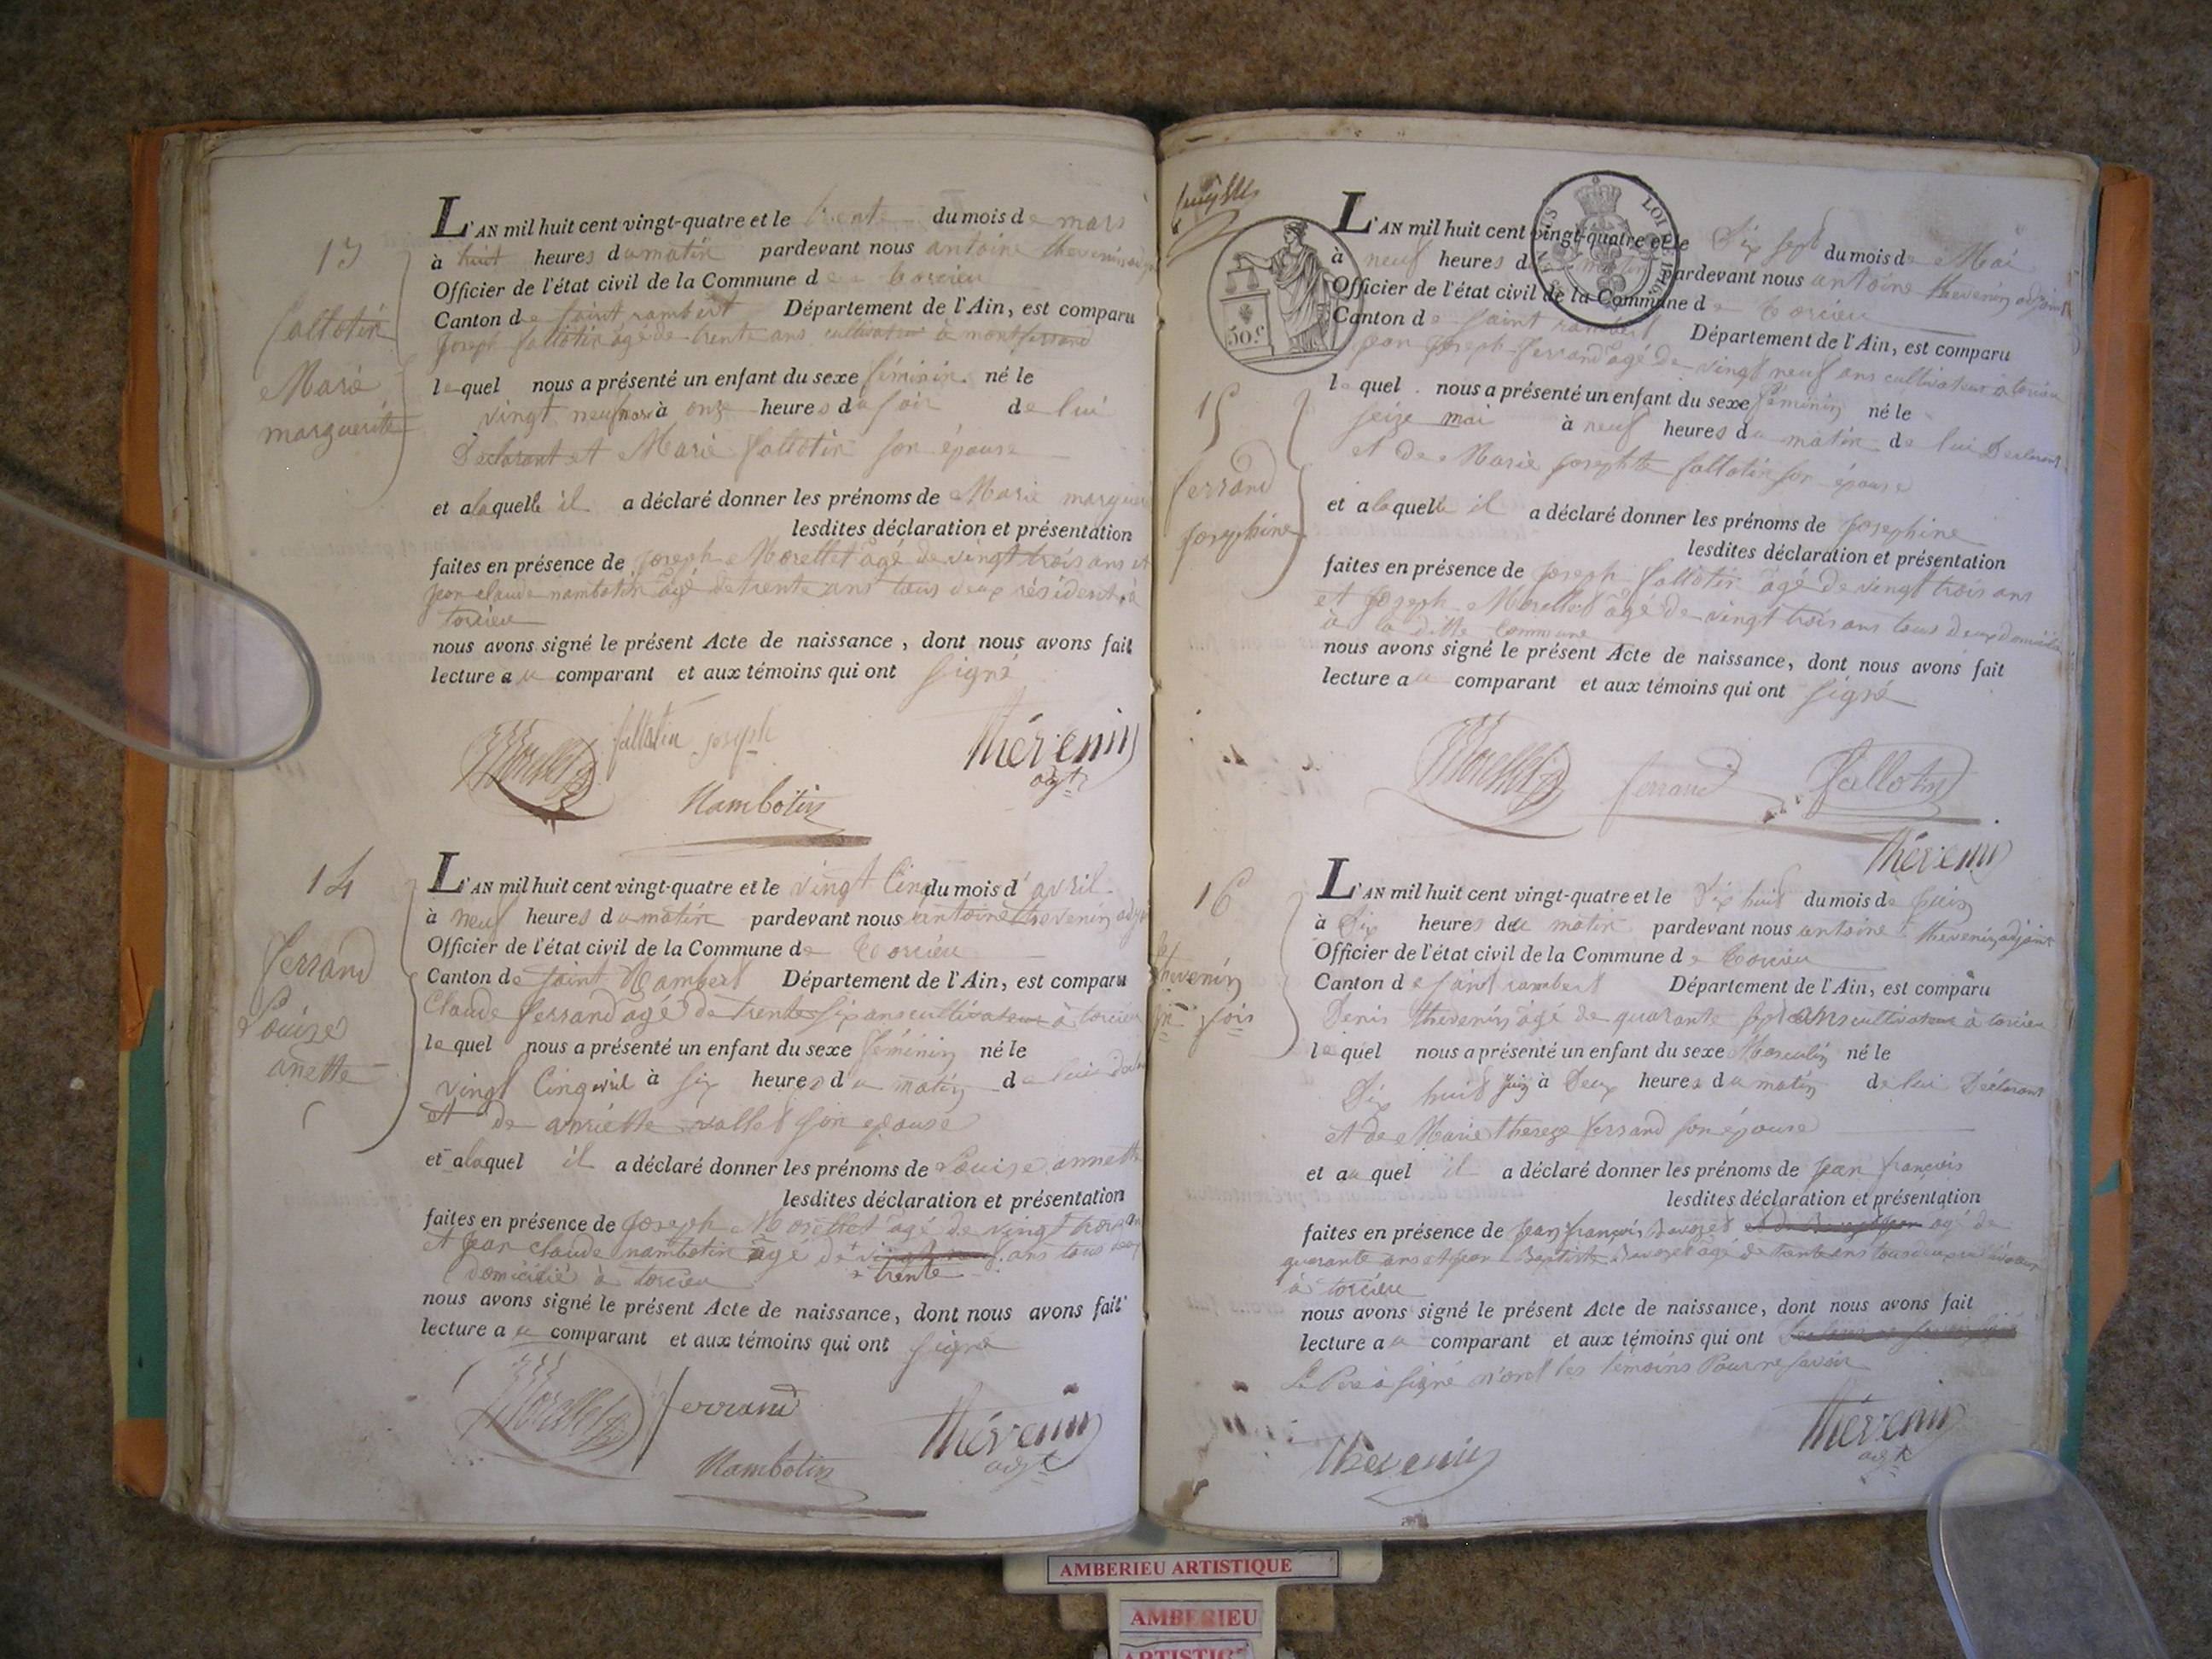 13
fallotin
Marie
marguerite
L'AN mil huit cent vingt-quatre et le trente du mois de mars
à huit heures du matin pardevant nous antoine thevenin
Officier de l'état civil de la Commune de torcieu
Canton de saint rambert Département de l'Ain, est comparu
joseph fallotin âgé de trente ans cultivateur à montferrand
lequel nous a présenté un enfant du sexe féminin né le
vingt neuf mars à onze heures du soir de lui
Déclarant et Marie fallotin son épouse
et alaquelle il a déclaré donner les prénoms de Marie marguer
lesdites déclaration et présentation
faites en présence de joseph Morellet âgé de vingt trois ans et
jean claude nambotin âgé de trente ans tous deux résident à
torcieu
nous avons signé le présent Acte de naissance, dont nous avons fait
lecture au comparant et aux témoins qui ont signé
Morellet fallotin joseph Thévenin
adjt
Nambotin
14
ferrand
Louise
anette
L'AN mil huit cent vingt-quatre et le vingt Cinq du mois d'avril
à neuf heures du matin pardevant nous antoine thevenin adj
Officier de l'état civil de la Commune de torcieu
Canton de saint Rambert Département de l'Ain, est comparu
Claude ferrand âgé de trente six ans cultivateur à torcieu
lequel nous a présenté un enfant du sexe féminin né le
vingt Cinq avril à six heures du matin de lui
et de anriette vallet son épouse
et alaquel il a déclaré donner les prénoms de Louise annette
lesdites déclaration et présentation
faites en présence de joseph Morellet âgé de vingt trois an
et jean claude nambotin âgé de ans tous
trente
domicilié à torcieu
nous avons signé le présent Acte de naissance, dont nous avons fait
lecture au comparant et aux témoins qui ont signé
Morellet ferrand Thévenin
adjt
Nambotin
LOI
50.c
15
ferrand
Josephine
L'AN mil huit cent vingt-quatre et le Dix sept du mois de Mai
à neuf heures du matin pardevant nous antoine thevenin adjoint
Officier de l'état civil de la Commune de torcieu
Canton de saint rambert Département de l'Ain, est comparu
jean joseph ferrand âgé de vingt neuf ans cultivateur à torcieu
lequel nous a présenté un enfant du sexe féminin né le
seize mai à neuf heures du matin de lui Déclarant
et de Marie josephte fallotin son épouse
et alaquelle il a déclaré donner les prénoms de josephine
lesdites déclaration et présentation
faites en présence de joseph fallotin âgé de vingt trois ans
et joseph Morellet âgé de vingt trois ans tous deux
à la ditte Commune
nous avons signé le présent Acte de naissance, dont nous avons fait
lecture au comparant et aux témoins qui ont signé
Morellet ferrand fallotin
Thévenin
16
thevenin
jn fois
L'AN mil huit cent vingt-quatre et le Dix huit du mois de juin
à Dix heures du matin pardevant nous antoine thevenin adjoint
Officier de l'état civil de la Commune de torcieu
Canton de saint rambert Département de l'Ain, est comparu
Denis thevenin âgé de quarante sept ans cultivateur à torcieu
lequel nous a présenté un enfant du sexe Masculin né le
Dix huit juin à Deux heures du matin de lui Déclarant
et de Marie thereze ferrand son épouse
et au quel il a déclaré donner les prénoms de jean françois
lesdites déclaration et présentation
faites en présence de jean françois âgé de
quarante ans et jean Baptiste âgé de trente ans tous deux
à torcieu
nous avons signé le présent Acte de naissance, dont nous avons fait
lecture au comparant et aux témoins qui ont
Le Père à signé n'ont les témoins Pour ne savoir
Thevenin Thévenin
adjt
AMBERIEU ARTISTIQUE
AMBERIEU